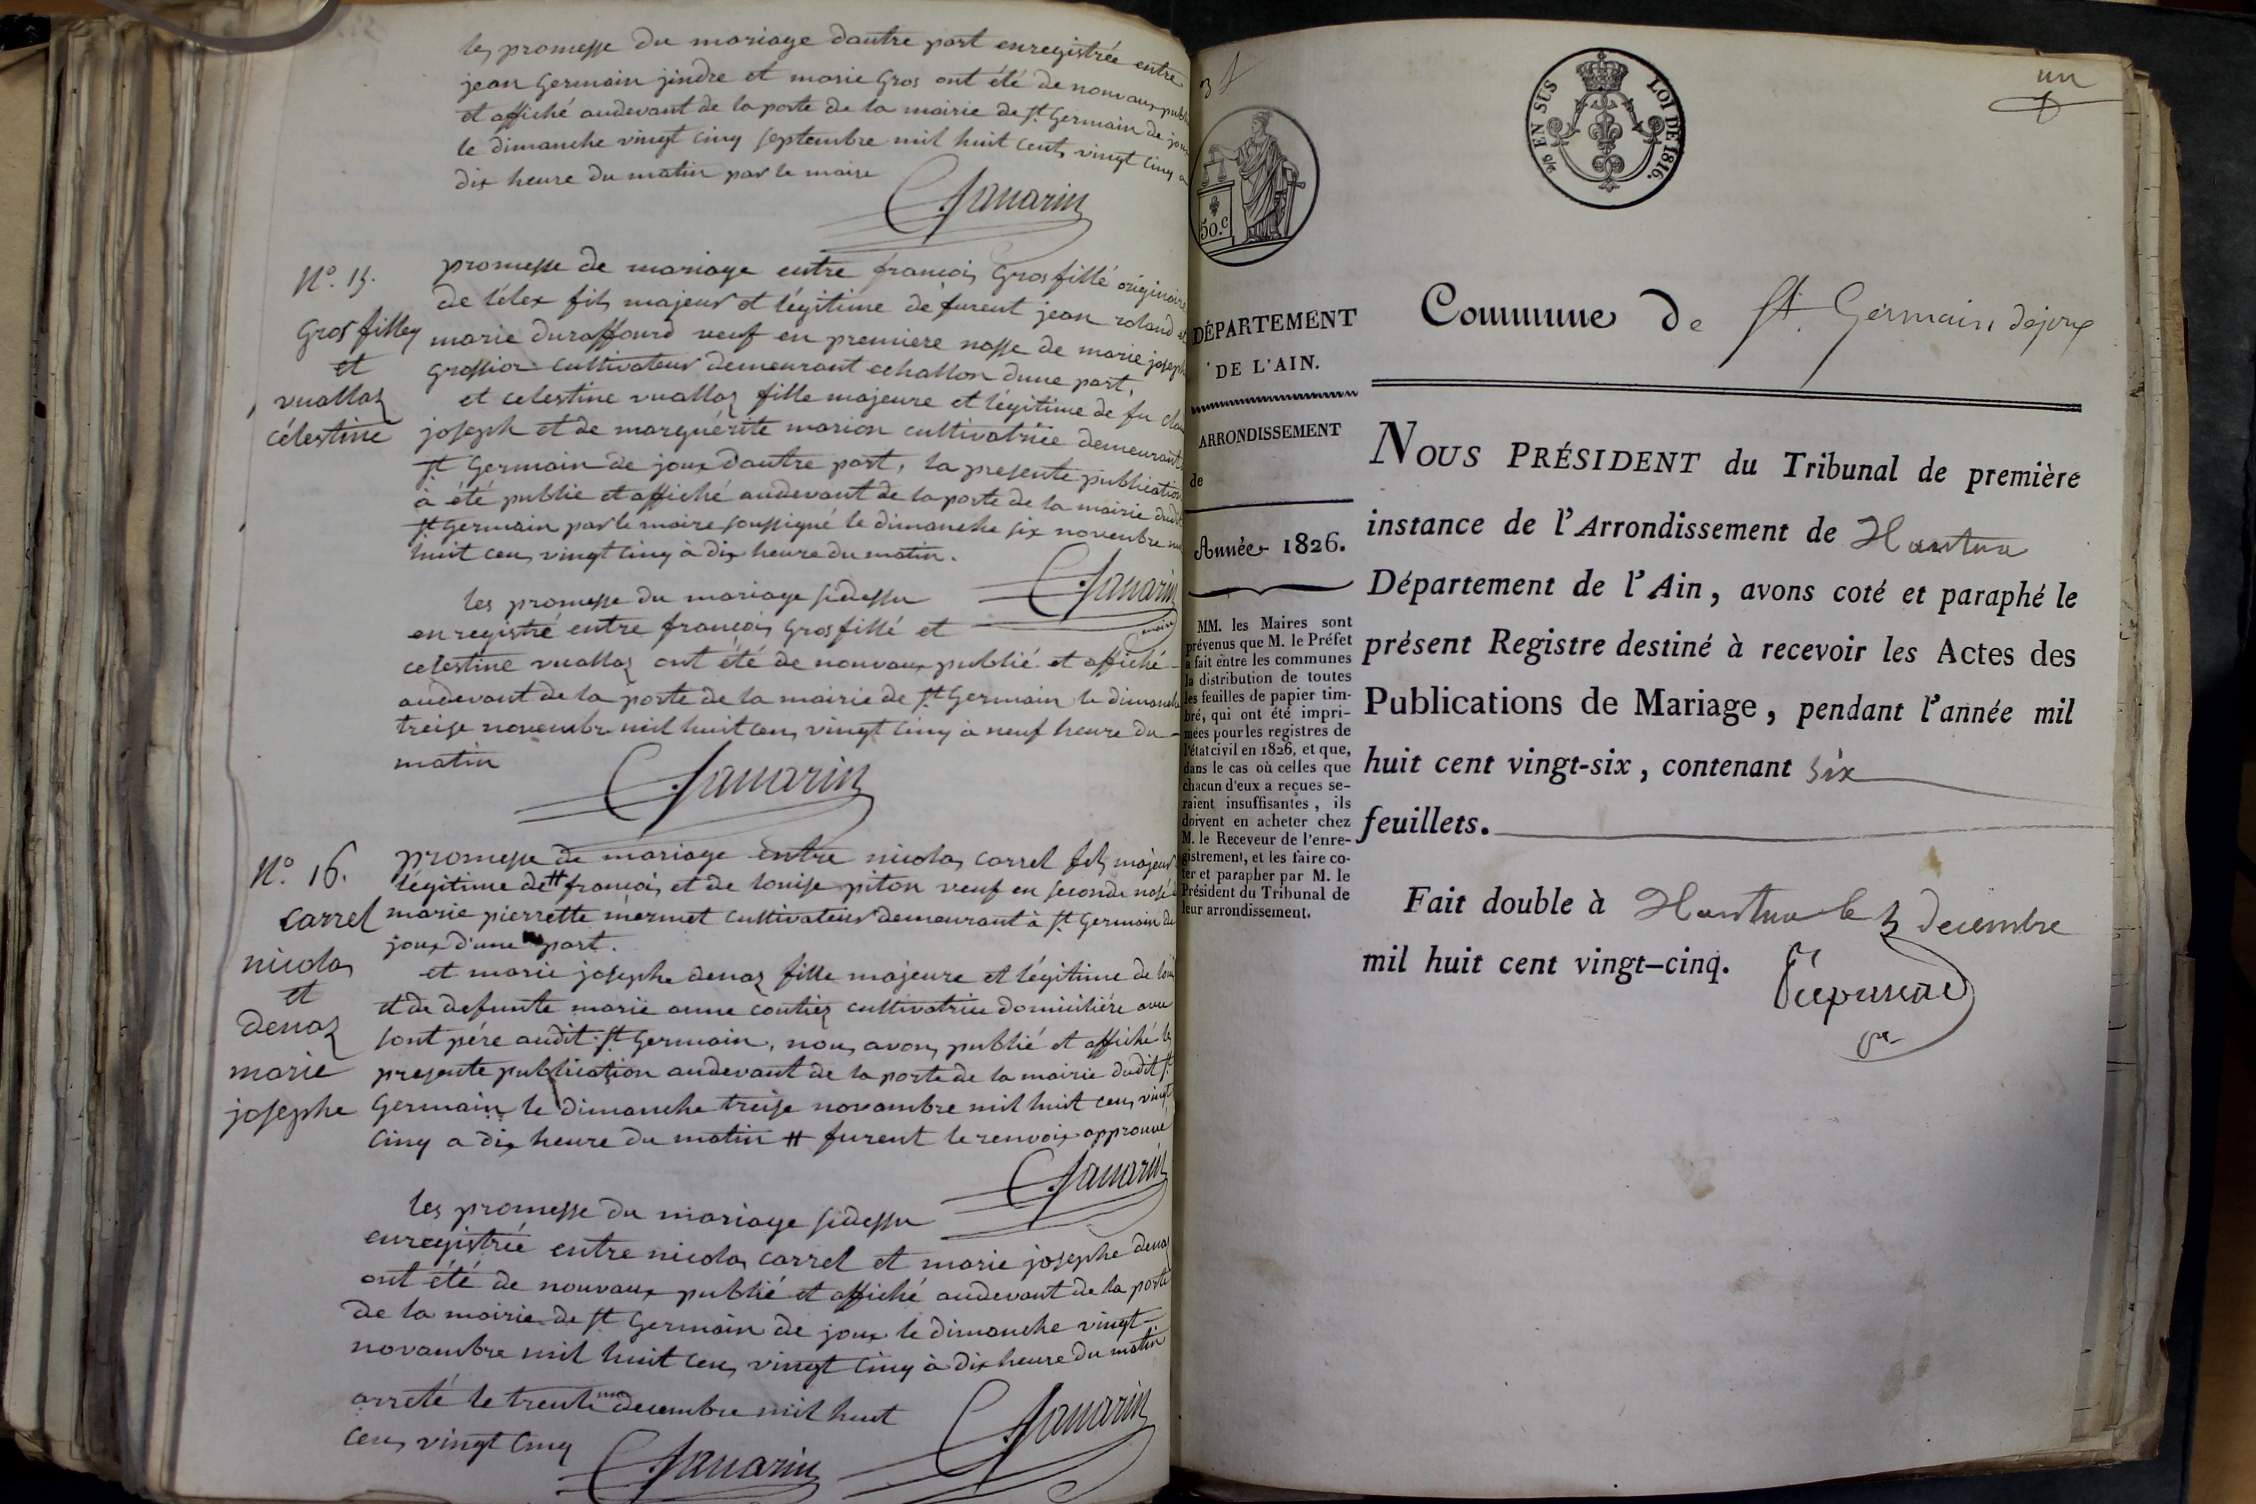 les promesse du mariage dautre part enregistrée entre
jean Germain jindre et marie Gros ont été de nouvaux publié
et affiché audevant de la porte de la mairie de St Germain de joux
le dimanche vingt cinq septembre mil huit cents vingt cinq a
dix heure du matin par le maire
N.º 15.
Grosfilley
et
vuallaz
célestine
promesse de mariage entre francois Grosfillé originaire
de lélex fils majeur et légitime de furent jean roland et
marie duraffourd veuf en premiere nosse de marie joseph
Grossior cultivateur demeurant echallon dune part,
et celestine vuallaz fille majeure et légitime de fu
joseph et de marguérite marion cultivatrice demeurant
St Germain de joux dautre part, la presente publication
à été publie et affiché audevant de la porte de la mairie dudit
St Germain par le maire soussigné le dimanche six novembre mil
huit cens vingt cinq à dix heure du matin.
maire
les promesse du mariage sidessu
enregistré entre francois Grosfillé et
celestine vuallaz ont été de nouvaux publié et affiché
audevant de la porte de la mairie de St Germain le dimanche
treise novembre mil huit cens vingt cinq à neuf heure du
matin
N.º 16.
carrel
nicolas
et
denaz
marie
josephe
promesse de mariage entre nicolas carrel fils majeur
légitime de # francois et de louise piton veuf en seconde nosse
marie pierrette mermet cultivateur demeurant à St Germain de
joux d'une part.
et marie josephe denaz fille majeure et légitime de
et de defunte marie anne coutiez cultivatrice domiciliére avec
sont pére audit St Germain, nous avons publié et affiché la
presente publication audevant de la porte de la mairie dudit St
Germain le dimanche treise novambre mil huit cens vingt
cinq a dix heure du matin # furent le renvoix approuvé
les promesse du mariage sidessu
enregistrée entre nicolas carrel et marie josephe denaz
ont été de nouvaux publié et affiché audevant de la porte
de la mairie de St Germain de joux le dimanche vingt
novambre mil huit cens vingt cinq à dix heure du matin
arreté le trente un decembre mil huit
cens vingt cinq
un
EN SUS
LOI DE 1816.
50.c
DÉPARTEMENT
DE L'AIN.
ARRONDISSEMENT
de
Année 1826.
MM. les Maires sont
prévenus que M. le Préfet
a fait entre les communes
la distribution de toutes
les feuilles de papier tim-
bré, qui ont été impri-
mées pour les registres de
l'état civil en 1826, et que,
dans le cas où celles que
chacun d'eux a reçues se-
raient insuffisantes, ils
doivent en acheter chez
M. le Receveur de l'enre-
gistrement, et les faire co-
ter et parapher par M. le
Président du Tribunal de
leur arrondissement.
Commune de St. Germain dejoux
NOUS PRÉSIDENT du Tribunal de première
instance de l'Arrondissement de Nantua
Département de l'Ain, avons coté et paraphé le
présent Registre destiné à recevoir les Actes des
Publications de Mariage, pendant l'année mil
huit cent vingt-six, contenant six
feuillets.
Fait double à Nantua le decembre
mil huit cent vingt-cinq.